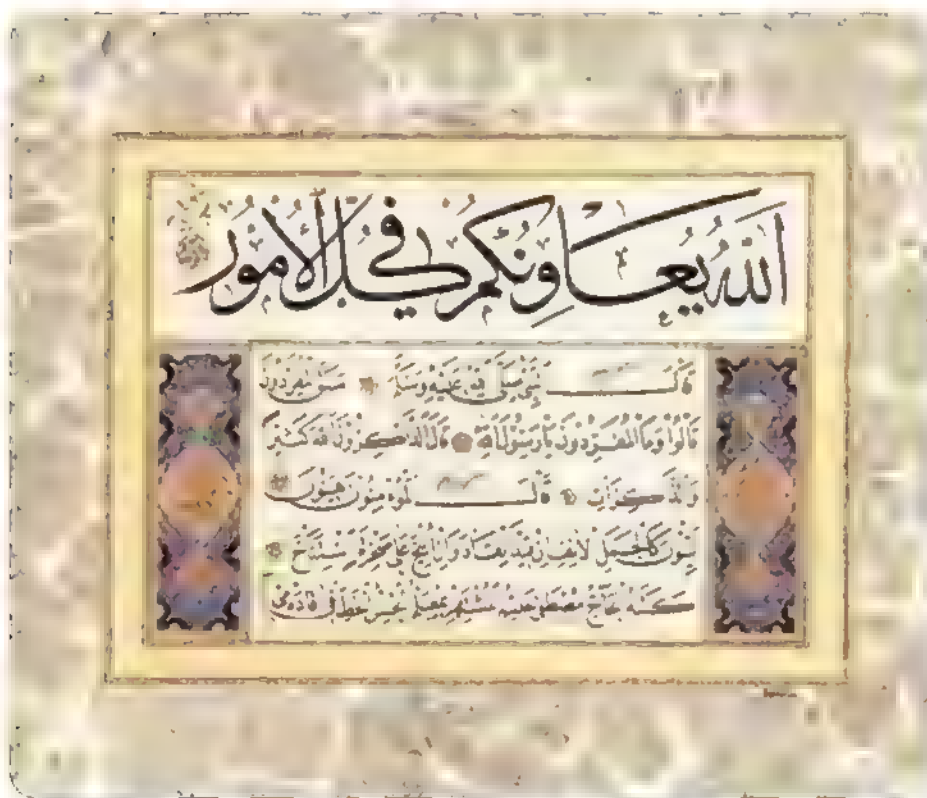 الله يعاونكم في كل الأمور
قال النبي صلى الله عليه وسلم سبق المفردون
قالوا وما المفردون يا رسول الله قال الذاكرون الله كثيرا
والذاكرات قال المؤمنون هينون
لينون كالجمل الأنف إن قيد انقاد وإن أنيخ على صخرة استناخ
كتبه الحاج مصطفى حليم